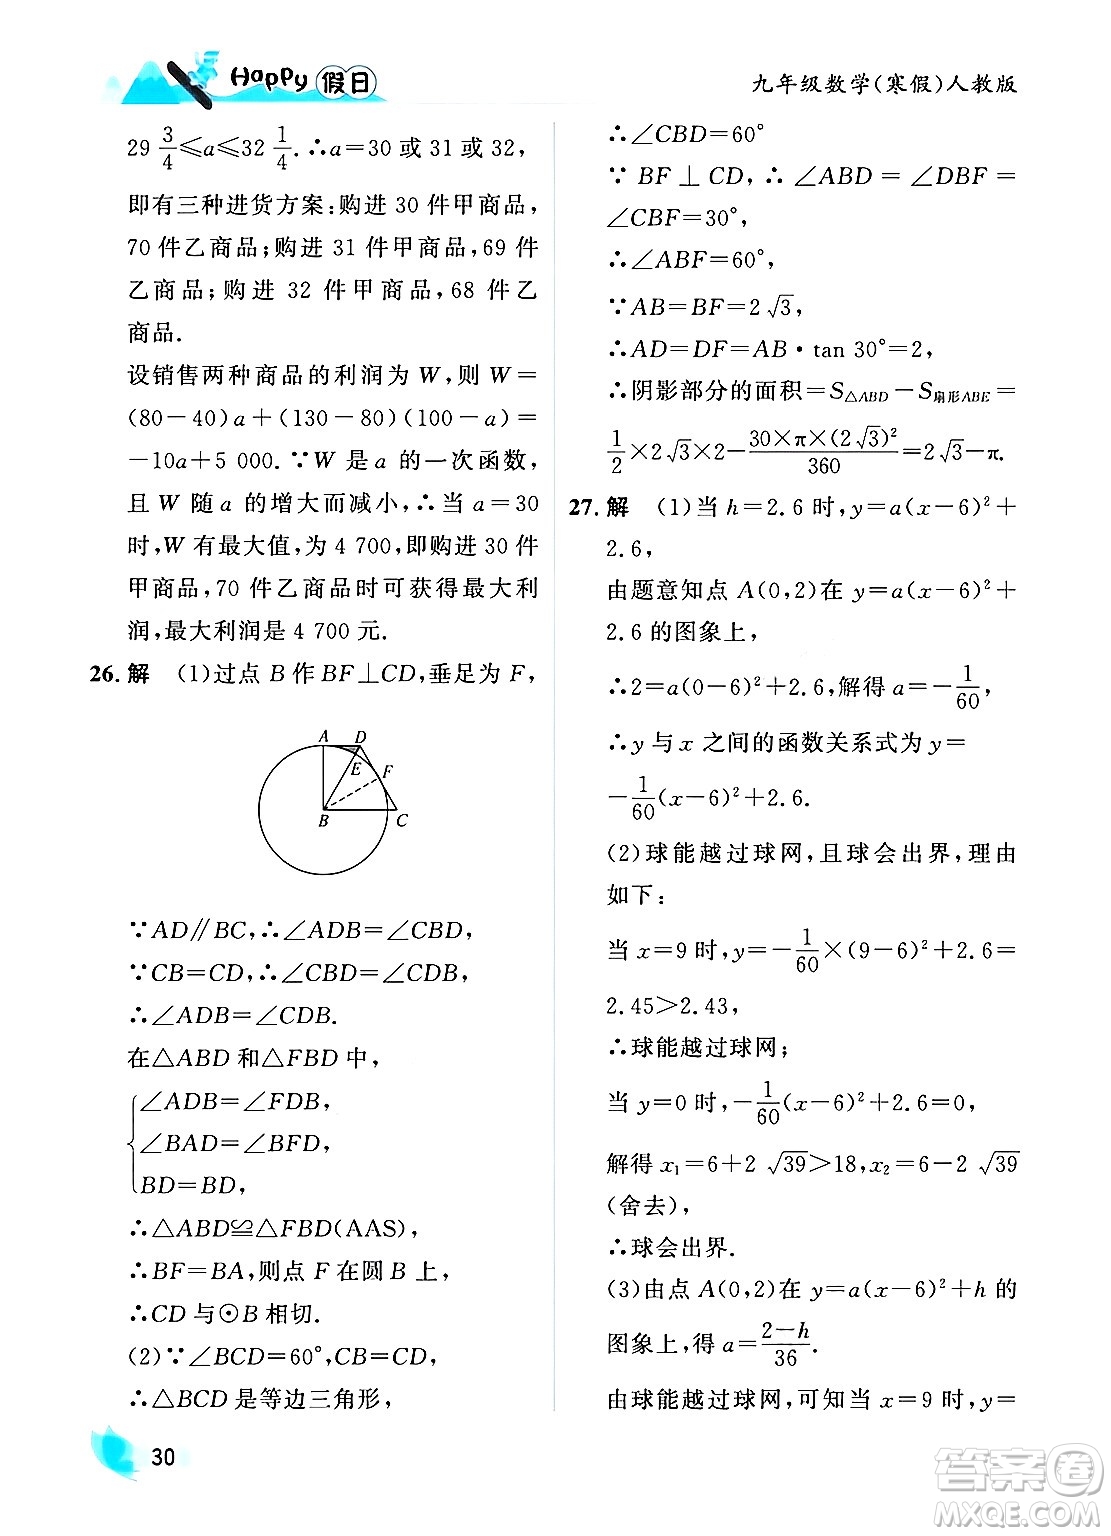 Happy 假日
九年级数学(寒假)人教版
29 3/4≤a≤32 1/4.∴a=30 或 31 或 32,
即有三种进货方案:购进 30 件甲商品,
70 件乙商品;购进 31 件甲商品,69 件
乙商品;购进 32 件甲商品,68 件乙
商品.
设销售两种商品的利润为 W,则 W=
(80-40)a+(130-80)(100-a)=
-10a+5 000.∵W 是 a 的一次函数,
且 W 随 a 的增大而减小,∴当 a=30
时,W 有最大值,为 4 700,即购进 30 件
甲商品,70 件乙商品时可获得最大利
润,最大利润是 4 700 元.
26.解 (1)过点 B 作 BF⊥CD,垂足为 F,
A D
E F
B C
∵AD∥BC,∴∠ADB=∠CBD,
∵CB=CD,∴∠CBD=∠CDB,
∴∠ADB=∠CDB.
在△ABD和△FBD 中,
∠ADB=∠FDB,
∠BAD=∠BFD,
BD=BD,
∴△ABD≌△FBD(AAS),
∴BF=BA,则点 F 在圆 B 上,
∴CD 与⊙B 相切.
(2)∵∠BCD=60°,CB=CD,
∴△BCD 是等边三角形,
∴∠CBD=60°
∵BF⊥CD,∴∠ABD=∠DBF=
∠CBF=30°,
∴∠ABF=60°,
∵AB=BF=2√3,
∴AD=DF=AB·tan 30°=2,
∴阴影部分的面积=S△ABD-S扇形ABE=
1/2×2√3×2-30×π×(2√3)²/360=2√3-π.
27.解 (1)当 h=2.6 时,y=a(x-6)²+
2.6,
由题意知点 A(0,2)在 y=a(x-6)²+
2.6 的图象上,
∴2=a(0-6)²+2.6,解得 a=-1/60,
∴y 与 x 之间的函数关系式为 y=
-1/60(x-6)²+2.6.
(2)球能越过球网,且球会出界,理由
如下:
当 x=9 时,y=-1/60×(9-6)²+2.6=
2.45>2.43,
∴球能越过球网;
当 y=0 时,-1/60(x-6)²+2.6=0,
解得 x₁=6+2√39>18,x₂=6-2√39
(舍去),
∴球会出界.
(3)由点 A(0,2)在 y=a(x-6)²+h 的
图象上,得 a=2-h/36.
由球能越过球网,可知当 x=9 时,y=
30
答案圈
MXQE.COM